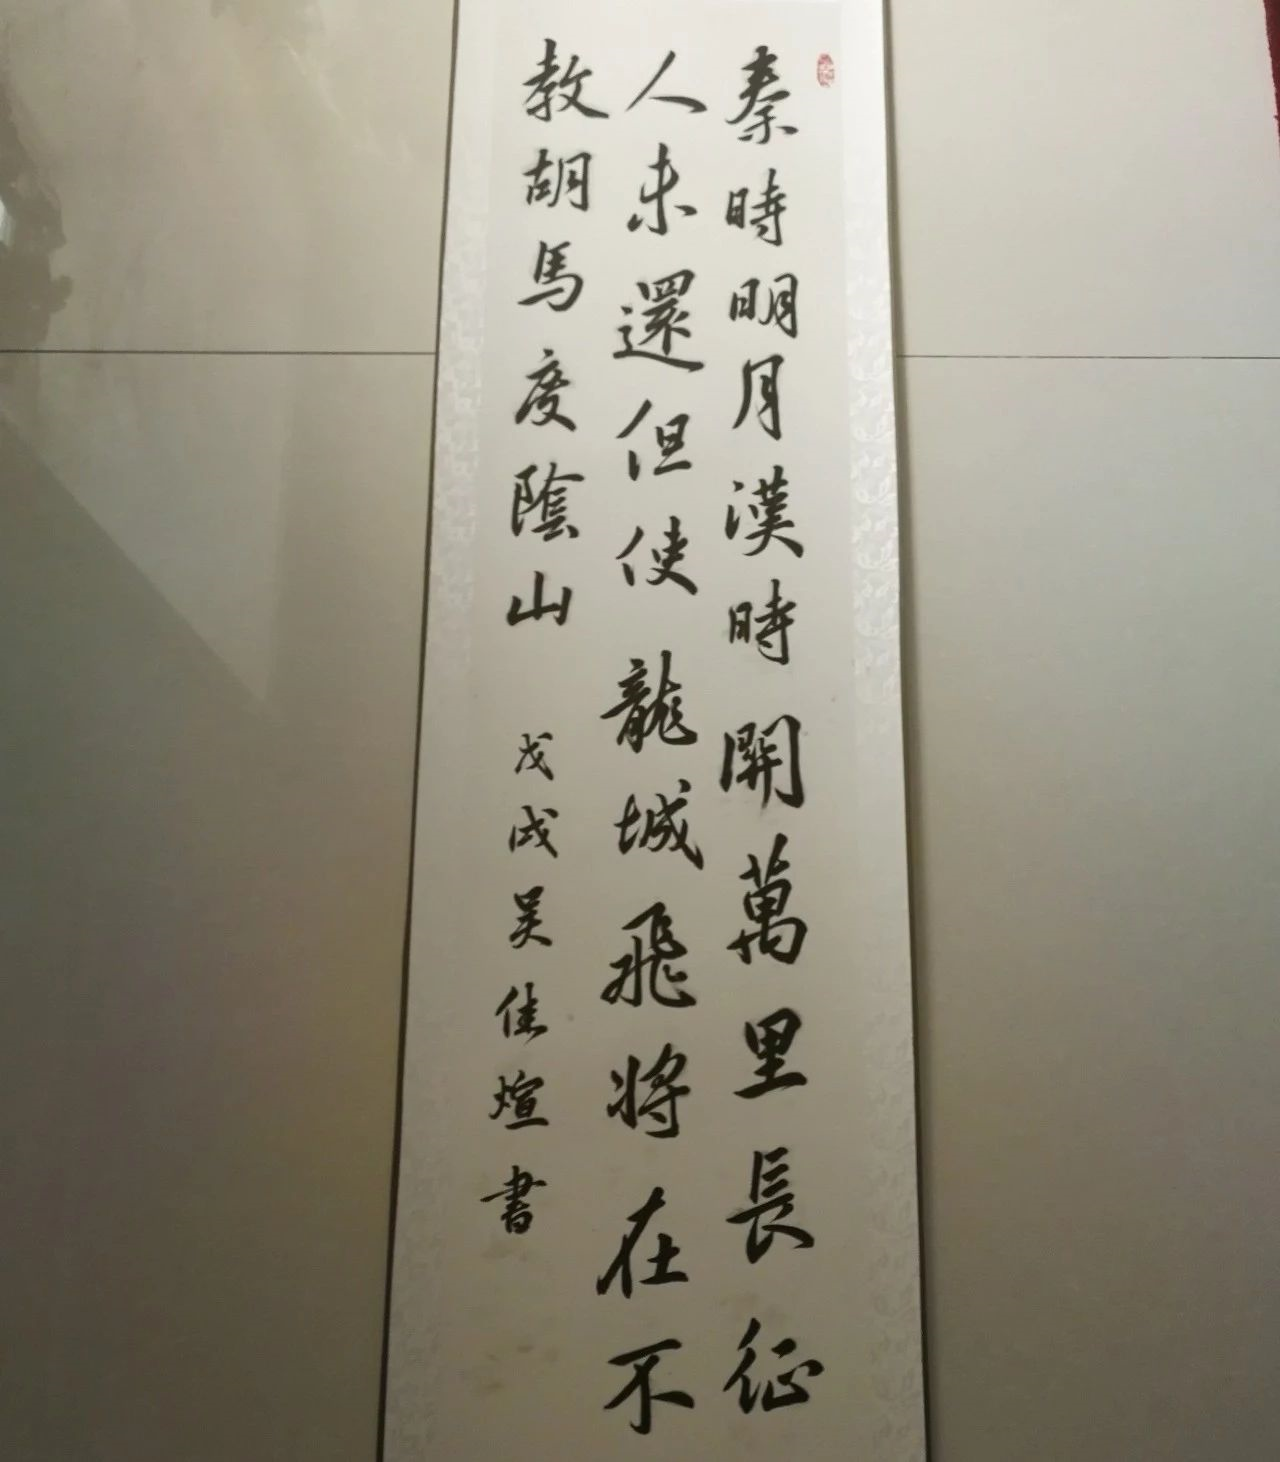 秦時明月漢時關萬里長征
人未還但使龍城飛將在不
教胡馬度陰山
戊戌吴佳煊書